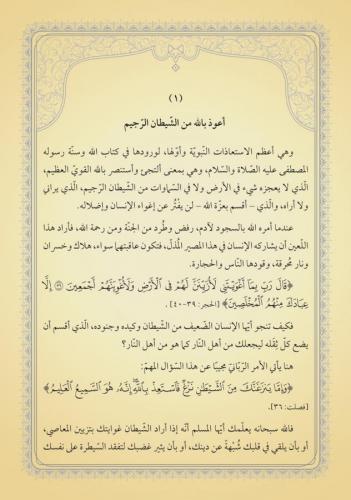 (١)
أعوذ بالله من الشّيطان الرّجيم
وهي أعظم الاستعاذات النبويّة وأوّلها، لورودها في كتاب الله وسنّة رسوله
المصطفى عليه الصّلاة والسّلام، وهي بمعنى ألتجئ وأستنصر بالله القويّ العظيم،
الّذي لا يعجزه شيء في الأرض ولا في السّماوات من الشّيطان الرّجيم، الّذي يراني
ولا أراه، والّذي – أقسم بعزّة الله – لن يفْتُر عن إغواء الإنسان وإضلاله.
عندما أمره الله بالسجود لآدم، رفض وطُرد من الجنّة ومن رحمة الله، فأراد هذا
اللّعين أن يشاركه الإنسان في هذا المصير المُذلّ، فتكون عاقبتهما سواء، هلاك وخسران
ونار مُحرقة، وقودها النّاس والحجارة.
﴿قَالَ رَبِّ بِمَآ أَغْوَيْتَنِي لَأُزَيِّنَنَّ لَهُمْ فِي ٱلْأَرْضِ وَلَأُغْوِيَنَّهُمْ أَجْمَعِينَ ۝ إِلَّا
عِبَادَكَ مِنْهُمُ ٱلْمُخْلَصِينَ﴾ [الحجر: ٣٩-٤٠].
فكيف تنجو أيّها الإنسان الضّعيف من الشّيطان وكيده وجنوده، الّذي أقسم أن
يضع كلّ ثِقَله ليجعلك من أهل النّار كما هو من أهل النّار؟
هنا يأتي الأمر الرّبّانيّ مجيبًا عن هذا السّؤال المهمّ:
﴿وَإِمَّا يَنزَغَنَّكَ مِنَ ٱلشَّيْطَٰنِ نَزْغٌ فَٱسْتَعِذْ بِٱللَّهِ إِنَّهُۥ هُوَ ٱلسَّمِيعُ ٱلْعَلِيمُ﴾
[فصلت: ٣٦].
فالله سبحانه يعلّمك أيّها المسلم أنّه إذا أراد الشّيطان غوايتك بتزيين المعاصي،
أو بأن يلقي في قلبك شُبْهةً عن دينك، أو بأن يثير غضبك لتفقد السّيطرة على نفسك